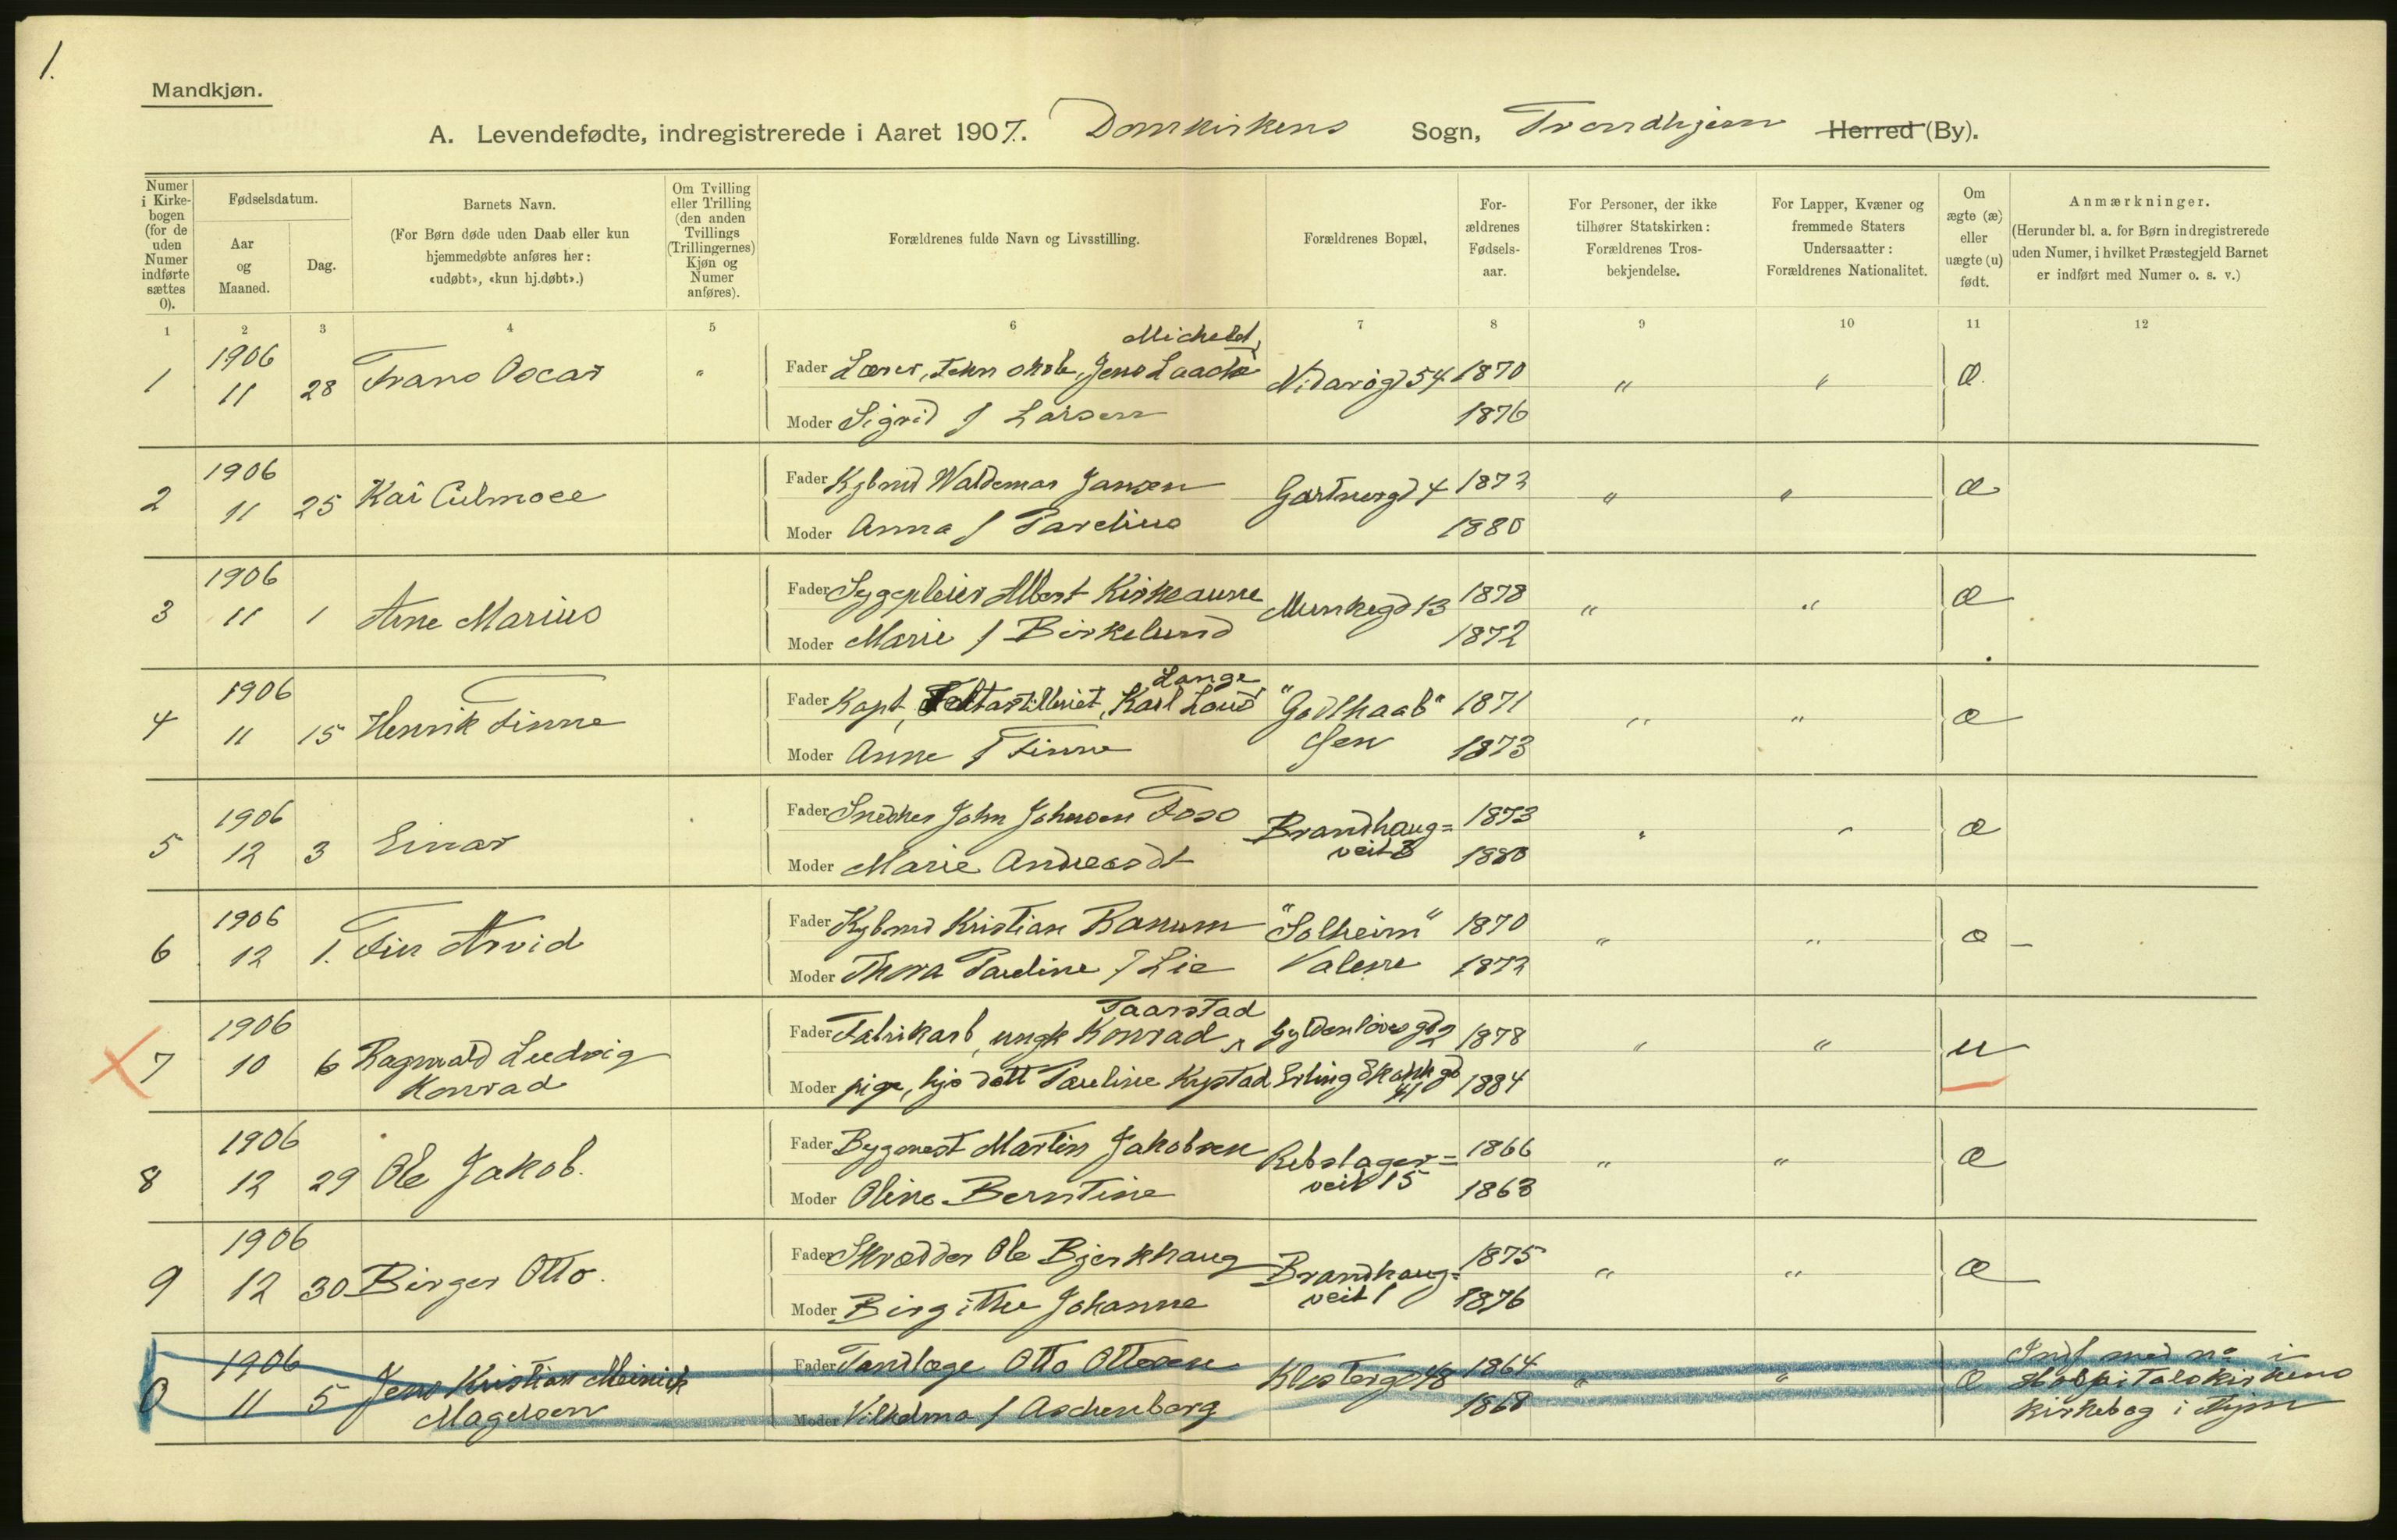 1.
Mandkjøn.
A. Levendefødte, indregistrerede i Aaret 1907. Domkirkens Sogn, Trondhjem Herred (By).
Numer i Kirkebogen (for de uden Numer indførte sættes 0).
Fødselsdatum.
Aar og Maaned.
Dag.
Barnets Navn.
(For Børn døde uden Daab eller kun hjemmedøbte anføres her: «udøbt», «kun hj.døbt».)
Om Tvilling eller Trilling (den anden Tvillings (Trillingernes) Kjøn og Numer anføres).
Forældrenes fulde Navn og Livsstilling.
Forældrenes Bopæl,
Forældrenes Fødselsaar.
For Personer, der ikke tilhører Statskirken: Forældrenes Trosbekjendelse.
For Lapper, Kvæner og fremmede Staters Undersaatter: Forældrenes Nationalitet.
Om ægte (æ) eller uægte (u) født.
Anmærkninger.
(Herunder bl. a. for Børn indregistrerede uden Numer, i hvilket Præstegjeld Barnet er indført med Numer o. s. v.)
1 2 3 4 5 6 7 8 9 10 11 12
1 1906 11 28 Frans Oscar "
Fader Lærer, tekn skole, Jens Michelet Laache Nidarøgd 54 1870 " " Æ.
Moder Sigrid f Larsen 1876
2 1906 11 25 Kai
Fader Kjbmd Waldemar Jansen Gartnergd 4 1873 " " æ
Moder Anna f Parelius 1880
3 1906 11 1 Arne Marius
Fader Sygepleier Albert Kirkeaune Munkegd 13 1878 " " æ
Moder Marie f Birkelund 1872
4 1906 11 15 Henrik Finne
Fader Kapt, Feltartilleriet, Karl Lange "Godthaab" 1871 " " æ
Moder Anne f Finne 1873
5 1906 12 3 Einar
Fader Snedker John Johnsen Foss Brandhaug= 1873 " " æ
Moder Marie veit 3 1880
6 1906 12 1. Finn Arvid
Fader Kjbmd Kristian Banum "Solheim" 1870 " " æ
Moder Thora Pauline f Lie Valene 1872
7 1906 10 6 Ragnvald Ludvig Konrad
Fader Fabrikarb, ungk Konrad Taarstad Gyldenløves gd 2 1878 " " u
Moder pige, hjs datt Pauline Kystad Erling Skakk gd 41 1884
8 1906 12 29 Ole Jakob.
Fader Bygmest Martin Jakobsen Rebslager= 1866 " " æ
Moder Oline Berntine veit 15 1863
9 1906 12 30 Birger Otto.
Fader Skrædder Ole Bjerkhaug Brandhaug= 1875 " " æ
Moder Birgitte Johanne veit 1 1876
0 1906 11 5 Jens Kristian Meinich Magelssen
Fader Tandlæge Otto Ottesen Klostergd 48 1864 " " æ Indf med no i
Moder Vilhelma f Aschenberg 1868 Hospitalskirkens
kirkebog i Thjem